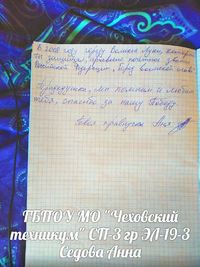 В 2008 году городу Великие Луки, которые
ты защищал, присвоено почётное звание
Российской Федерации „Город воинской славы"
Прадедушка, мы помним и любим
тебя, спасибо за нашу Победу.
Твоя правнучка Аня.
ГБПОУ МО "Чеховский
техникум" СП-3 гр ЭЛ-19-3
Седова Анна